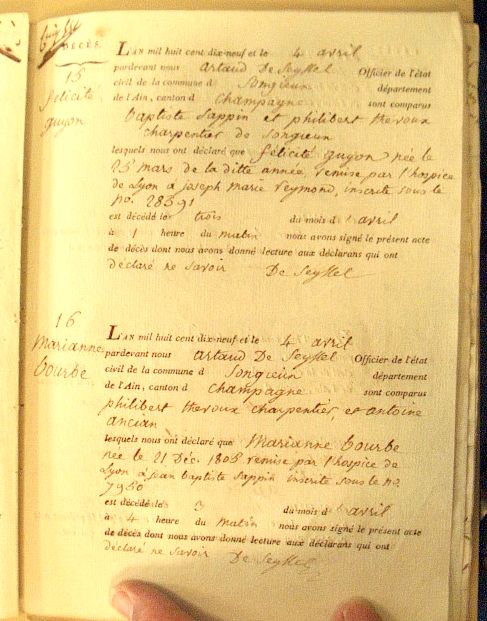 DÉCÈS.
15
félicité
guyon
L'AN mil huit cent dix-neuf et le 4 avril
pardevant nous Artaud De Seyssel Officier de l'état
civil de la commune d Songieun département
de l'Ain, canton d Champagne sont comparus
Baptiste Sappin et philibert theroux
charpentier de Songieun
lesquels nous ont déclaré que félicité guyon née le
25 mars de la ditte année, remise par l'hospice
de Lyon à joseph marie Reymond, inscrite sous le
no. 28391
est décédé le trois du mois d avril
à 1 heure du matin nous avons signé le présent acte
de décès dont nous avons donné lecture aux déclarans qui ont
déclaré ne savoir De Seyssel
16
Marianne
bourbe
L'AN mil huit cent dix-neuf et le 4 avril
pardevant nous Artaud De Seyssel Officier de l'état
civil de la commune d Songieun département
de l'Ain, canton d Champagne sont comparus
philibert theroux charpentier, et antoine
ancian
lesquels nous ont déclaré que Marianne bourbe
née le 21 Déc. 1805 remise par l'hospice de
Lyon à jean baptiste Sappin inscrite sous le no.
7950
est décédé le 3 du mois d avril
à 4 heure du matin nous avons signé le présent acte
de décès dont nous avons donné lecture aux déclarans qui ont
déclaré ne savoir De Seyssel